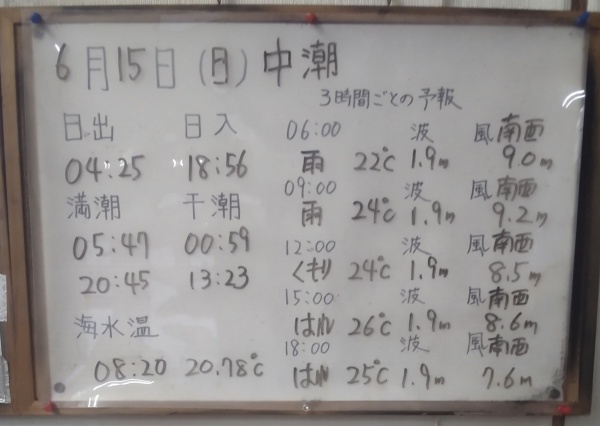 6月15日(日)中潮
日出 日入
04:25 18:56
満潮 干潮
05:47 00:59
20:45 13:23
海水温
08:20 20.78℃
3時間ごとの予報
06:00 波 風南西
雨 22℃ 1.9m 9.0m
09:00 波 風南西
雨 24℃ 1.9m 9.2m
12:00 波 風南西
くもり 24℃ 1.9m 8.5m
15:00 波 風南西
はれ 26℃ 1.9m 8.6m
18:00 波 風南西
はれ 25℃ 1.9m 7.6m